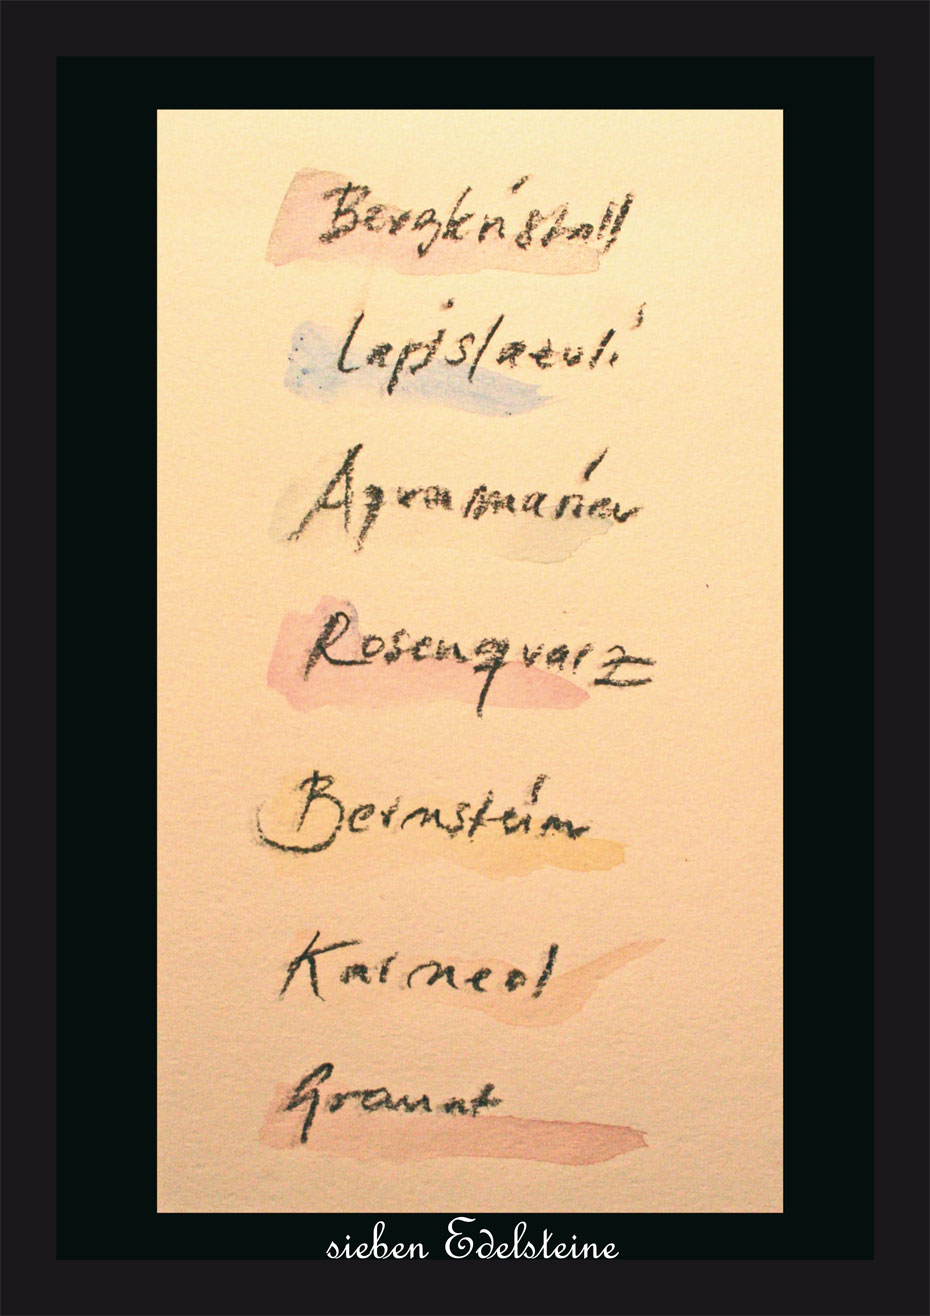 Bergkristall
Lapislazuli
Aquamarin
Rosenquarz
Bernstein
Karneol
Granat
sieben Edelsteine